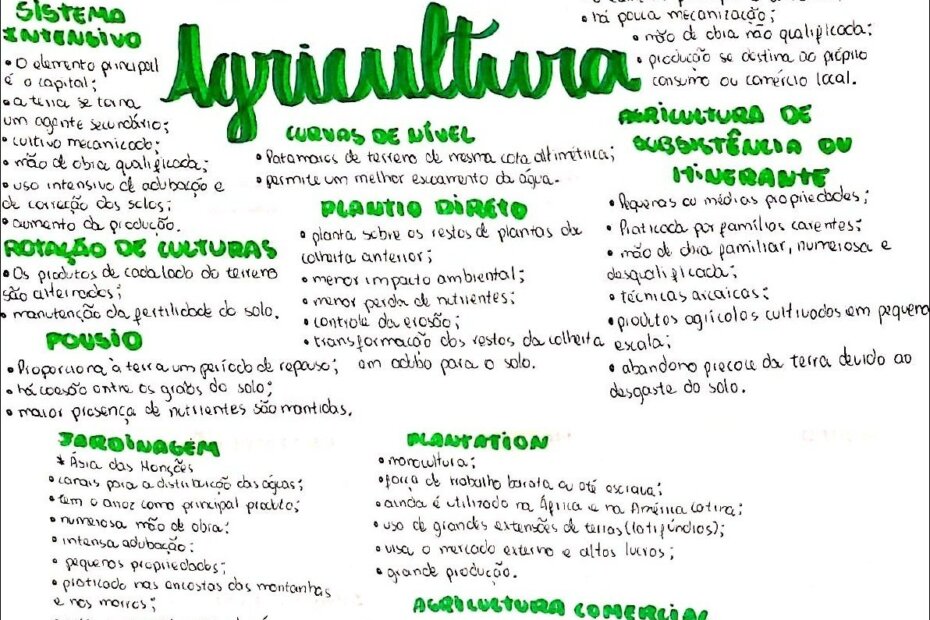 Agricultura
SISTEMA
INTENSIVO
• O elemento principal
é o capital;
• a terra se torna
um agente secundário;
• cultivo mecanizado;
• mão de obra qualificada;
• uso intensivo de adubação e
de correção dos solos;
• aumento da produção.
ROTAÇÃO DE CULTURAS
• Os produtos de cada lado do terreno
são alternados;
• manutenção da fertilidade do solo.
POUSIO
• Proporciona à terra um período de repouso;
• há coesão entre os grãos do solo;
• maior presença de nutrientes são mantidas.
CURVAS DE NÍVEL
• Patamares de terreno de mesma cota altimétrica;
• permite um melhor escoamento da água.
PLANTIO DIRETO
• planta sobre os restos de plantas da
colheita anterior;
• menor impacto ambiental;
• menor perda de nutrientes;
• controle da erosão;
• transformação dos restos da colheita
em adubo para o solo.
• há pouca mecanização;
• mão de obra não qualificada;
• produção se destina ao próprio
consumo ou comércio local.
AGRICULTURA DE
SUBSISTÊNCIA OU
ITINERANTE
• Pequenas ou médias propriedades;
• Praticada por famílias carentes;
• mão de obra familiar, numerosa e
desqualificada;
• técnicas arcaicas;
• produtos agrícolas cultivados em pequena
escala;
• abandono precoce da terra devido ao
desgaste do solo.
JARDINAGEM
* Ásia das Monções
• canais para a distribuição das águas;
• tem o arroz como principal produto;
• numerosa mão de obra;
• intensa adubação;
• pequenas propriedades;
• praticado nas encostas das montanhas
e nos morros;
PLANTATION
• monocultura;
• força de trabalho barata ou até escrava;
• ainda é utilizado na África e na América Latina;
• uso de grandes extensões de terras (latifúndios);
• visa o mercado externo e altos lucros;
• grande produção.
AGRICULTURA COMERCIAL